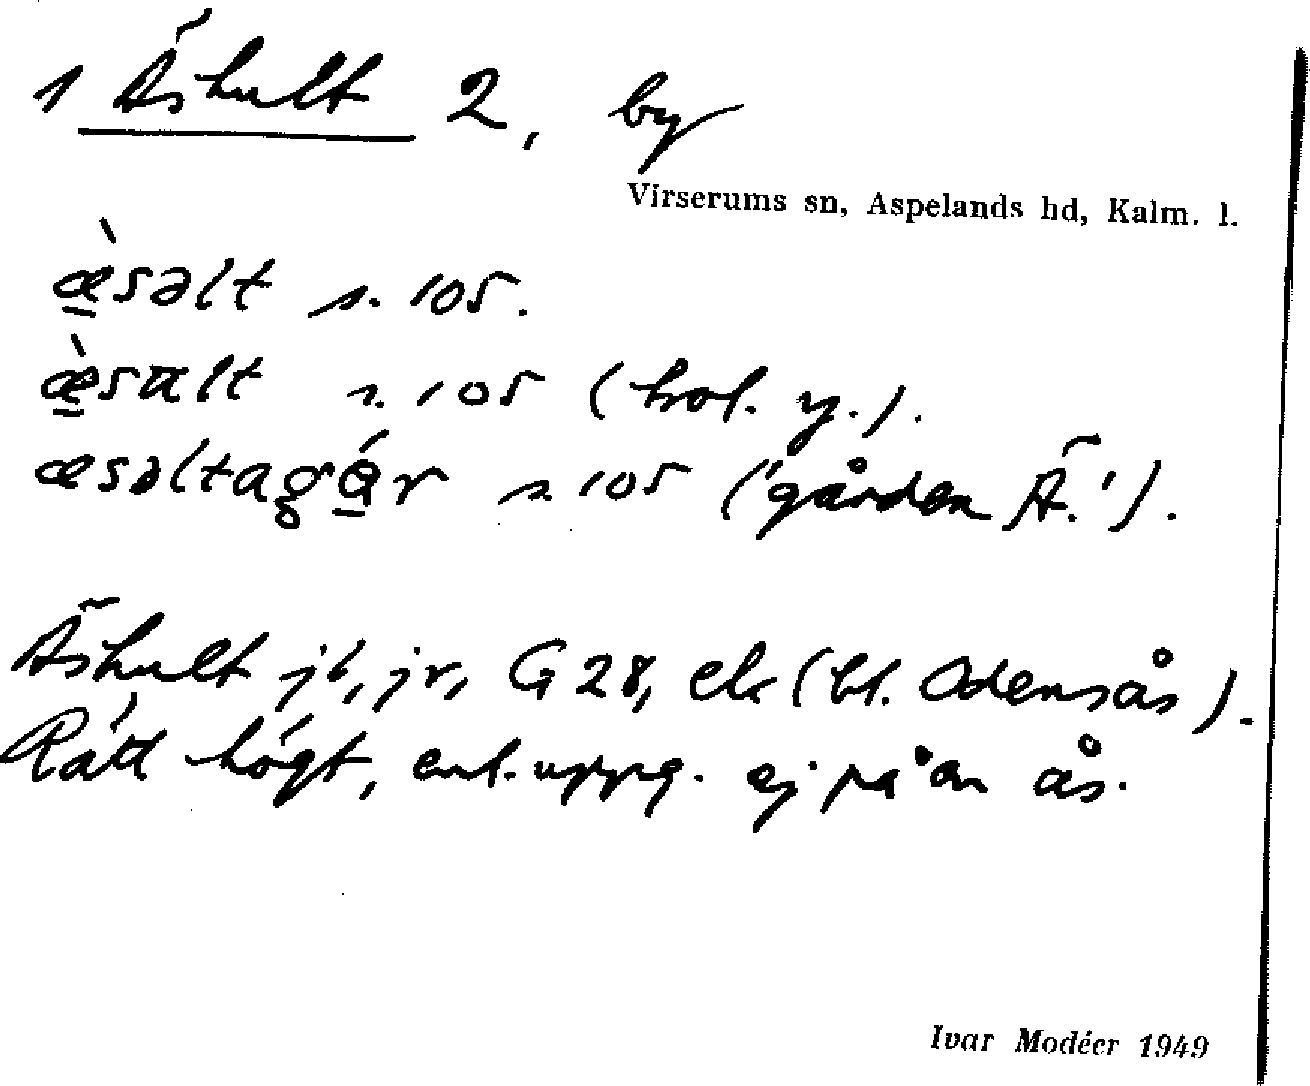 1 Äshult 2, by
Virserums sn, Aspelands hd, Kalm. l.
æ̀səlt s. 105.
æ̀sult s. 105 (hol. y.).
æsəltagǻr s. 105 ('gården Ä.').
Äshult jb, jr, G 28, ek (bl. Odensås).
Rätt högt, enl. uppg. ej på en ås.
Ivar Modéer 1949